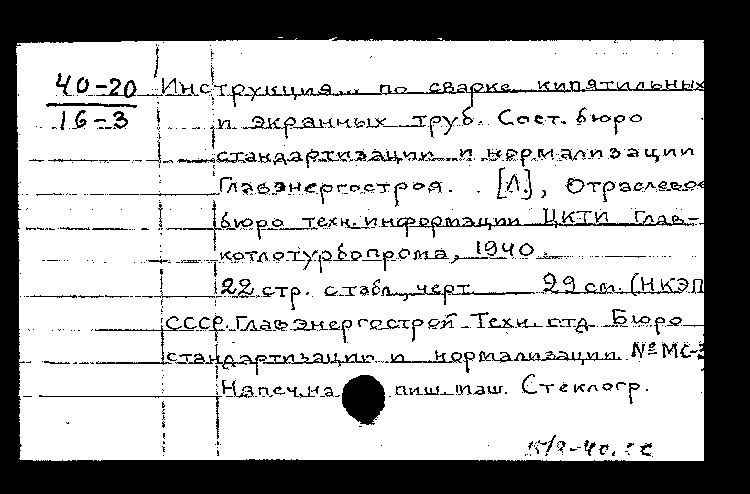 40-20
16-3
Инструкция... по сварке кипятильных
и экранных труб. Сост. бюро
стандартизации и нормализации
Главэнергостроя. [Л.], Отраслевое
бюро техн. информации ЦКТИ Глав-
котлотурбопрома, 1940.
22 стр. с табл., черт. 29 см. (НКЭП
СССР. Главэнергострой. Техн. отд. Бюро
стандартизации и нормализации. № МС-3
Напеч. на пиш. маш. Стеклогр.